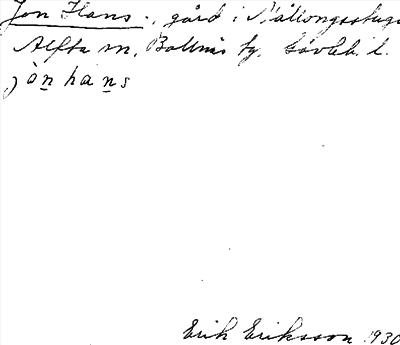 Jon Hans., gård i Mållongsstuga
Alfta sn, Bollnäs tg, Gävleb. l.
jòn hans
Erik Eriksson 1930